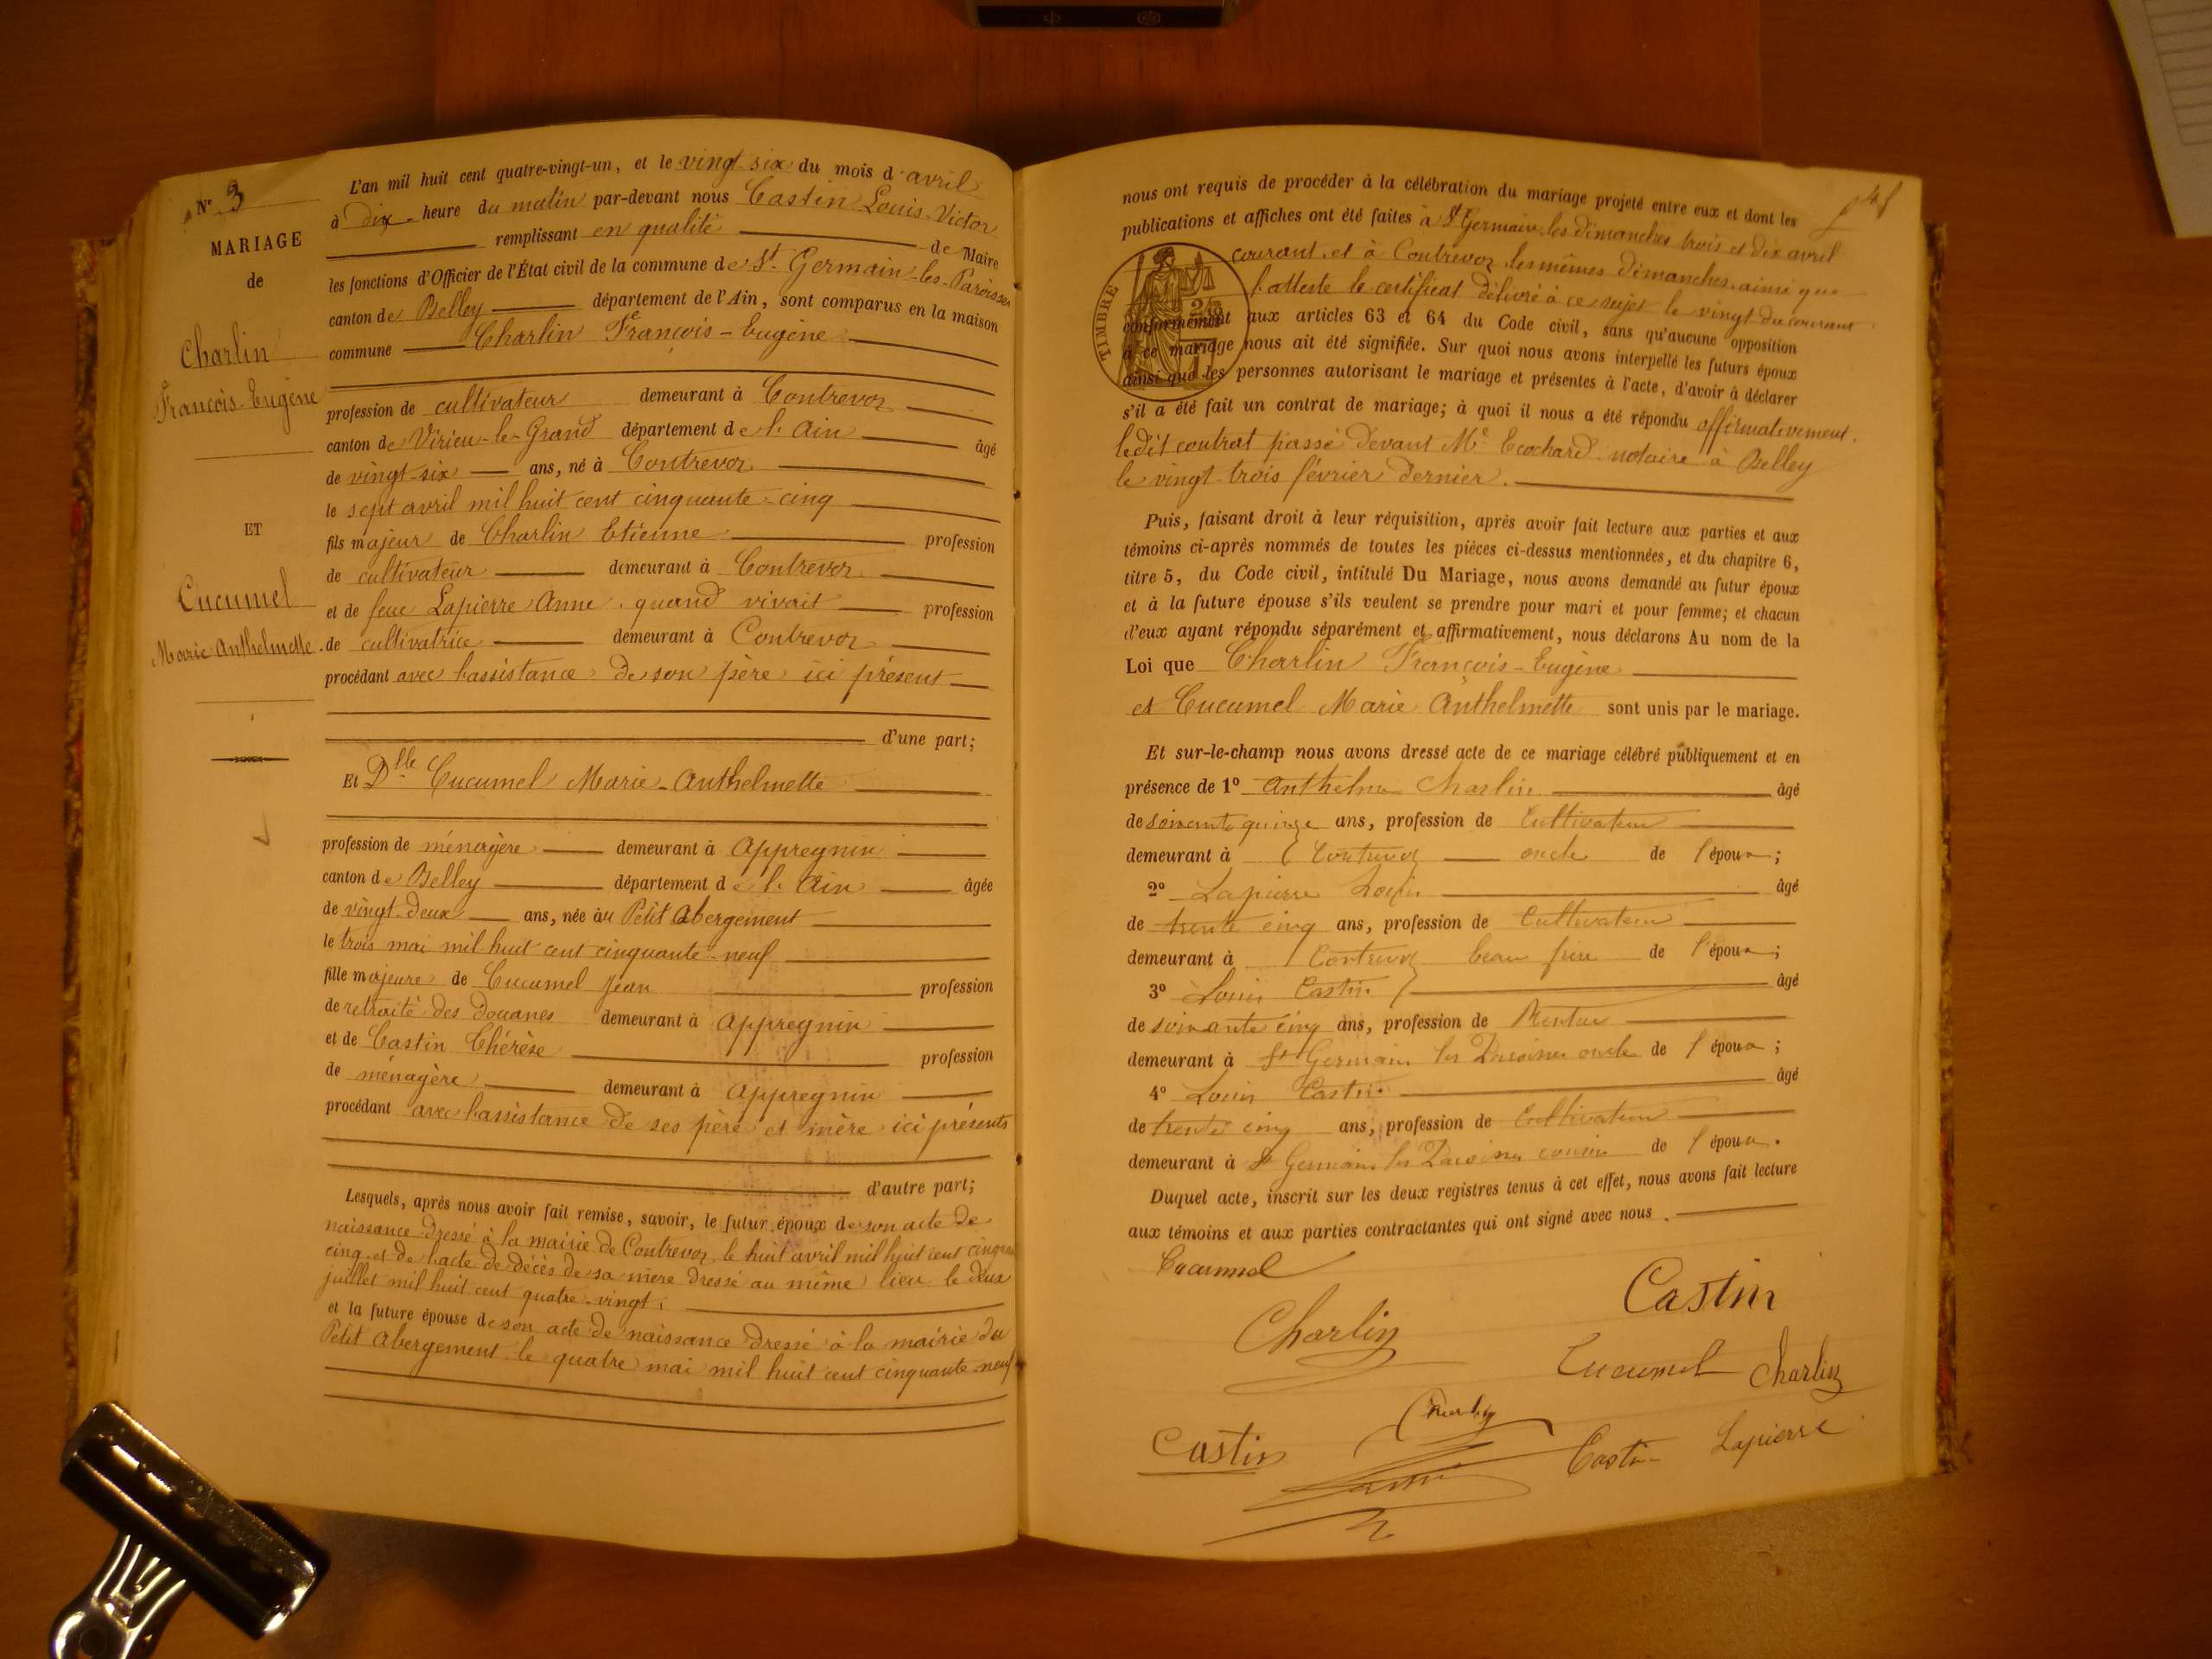 Nº 3
MARIAGE
de
Charlin
François-Eugène
ET
Cucumel
Marie Anthelmette
L'an mil huit cent quatre-vingt-un, et le vingt-six du mois d'avril
à dix heure du matin par-devant nous Castin Louis-Victor
remplissant en qualité de Maire
les fonctions d'Officier de l'État civil de la commune de St Germain-les-Paroisses
canton de Belley département de l'Ain, sont comparus en la maison
commune Charlin François-Eugène
profession de cultivateur demeurant à Contrevoz
canton de Virieu-le-Grand département de l'Ain âgé
de vingt-six ans, né à Contrevoz
le sept avril mil huit cent cinquante-cinq
fils majeur de Charlin Etienne profession
de cultivateur demeurant à Contrevoz
et de feue Lapierre Anne quand vivait profession
de cultivatrice demeurant à Contrevoz
procédant avec l'assistance de son père ici présent
d'une part;
Et Dlle Cucumel Marie-Anthelmette
profession de ménagère demeurant à Appregnin
canton de Belley département de l'Ain âgée
de vingt-deux ans, née au Petit Abergement
le trois mai mil huit cent cinquante-neuf
fille majeure de Cucumel Jean profession
de retraité des Douanes demeurant à Appregnin
et de Castin Thérèse profession
de ménagère demeurant à Appregnin
procédant avec l'assistance de ses père et mère ici présents
d'autre part;
Lesquels, après nous avoir fait remise, savoir, le futur époux de son acte de
naissance dressé à la mairie de Contrevoz le huit avril mil huit cent cinquante
cinq et de l'acte de décès de sa mère dressé au même lieu le deux
juillet mil huit cent quatre-vingt;
et la future épouse de son acte de naissance dressé à la mairie du
Petit Abergement le quatre mai mil huit cent cinquante-neuf
nous ont requis de procéder à la célébration du mariage projeté entre eux et dont les
publications et affiches ont été faites à St Germain les dimanches trois et dix avril
courant et à Contrevoz les mêmes dimanches ainsi que
l'atteste le certificat délivré à ce sujet le vingt du courant
TIMBRE
conformément aux articles 63 et 64 du Code civil, sans qu'aucune opposition
à ce mariage nous ait été signifiée. Sur quoi nous avons interpellé les futurs époux
ainsi que les personnes autorisant le mariage et présentes à l'acte, d'avoir à déclarer
s'il a été fait un contrat de mariage; à quoi il nous a été répondu affirmativement.
ledit contrat passé devant Me Ecochard notaire à Belley
le vingt-trois février dernier.
Puis, faisant droit à leur réquisition, après avoir fait lecture aux parties et aux
témoins ci-après nommés de toutes les pièces ci-dessus mentionnées, et du chapitre 6,
titre 5, du Code civil, intitulé Du Mariage, nous avons demandé au futur époux
et à la future épouse s'ils veulent se prendre pour mari et pour femme; et chacun
d'eux ayant répondu séparément et affirmativement, nous déclarons Au nom de la
Loi que Charlin François-Eugène
et Cucumel Marie Anthelmette sont unis par le mariage.
Et sur-le-champ nous avons dressé acte de ce mariage célébré publiquement et en
présence de 1º Anthelme Charlin âgé
de soixante quinze ans, profession de Cultivateur
demeurant à Contrevoz oncle de l'époux;
2º Lapierre Louis âgé
de trente cinq ans, profession de Cultivateur
demeurant à Contrevoz beau frère de l'époux;
3º Louis Castin âgé
de soixante cinq ans, profession de Rentier
demeurant à St Germain les Paroisses oncle de l'épouse;
4º Louis Castin âgé
de trente cinq ans, profession de Cultivateur
demeurant à St Germain les Paroisses cousin de l'épouse.
Duquel acte, inscrit sur les deux registres tenus à cet effet, nous avons fait lecture
aux témoins et aux parties contractantes qui ont signé avec nous.
Cucumel
Castin
Charlin
Cucumel Charlin
Castin Castin Lapierre